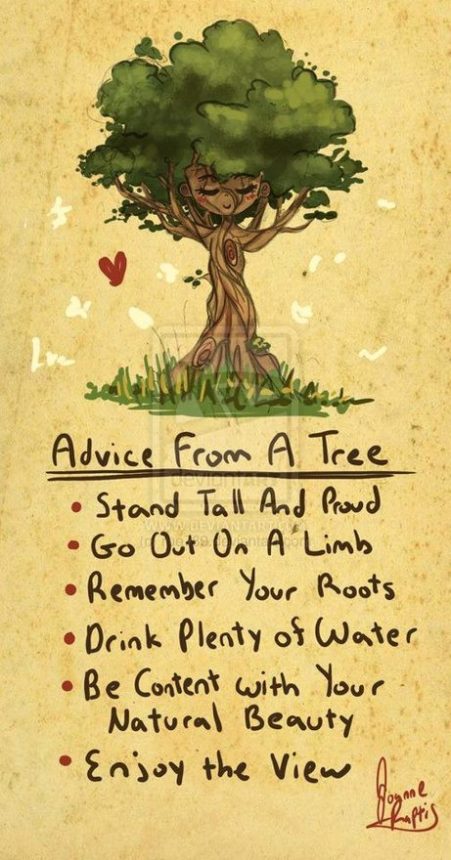 Advice From A Tree
deviantART
• Stand Tall And Proud
• Go Out On A Limb
• Remember Your Roots
• Drink Plenty of Water
• Be Content with Your
Natural Beauty
• Enjoy the View
Joanne
Raptis